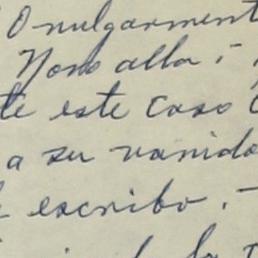 O vulgarment
Nono alla, -
te este caso
a su vanida
escribo. -
la